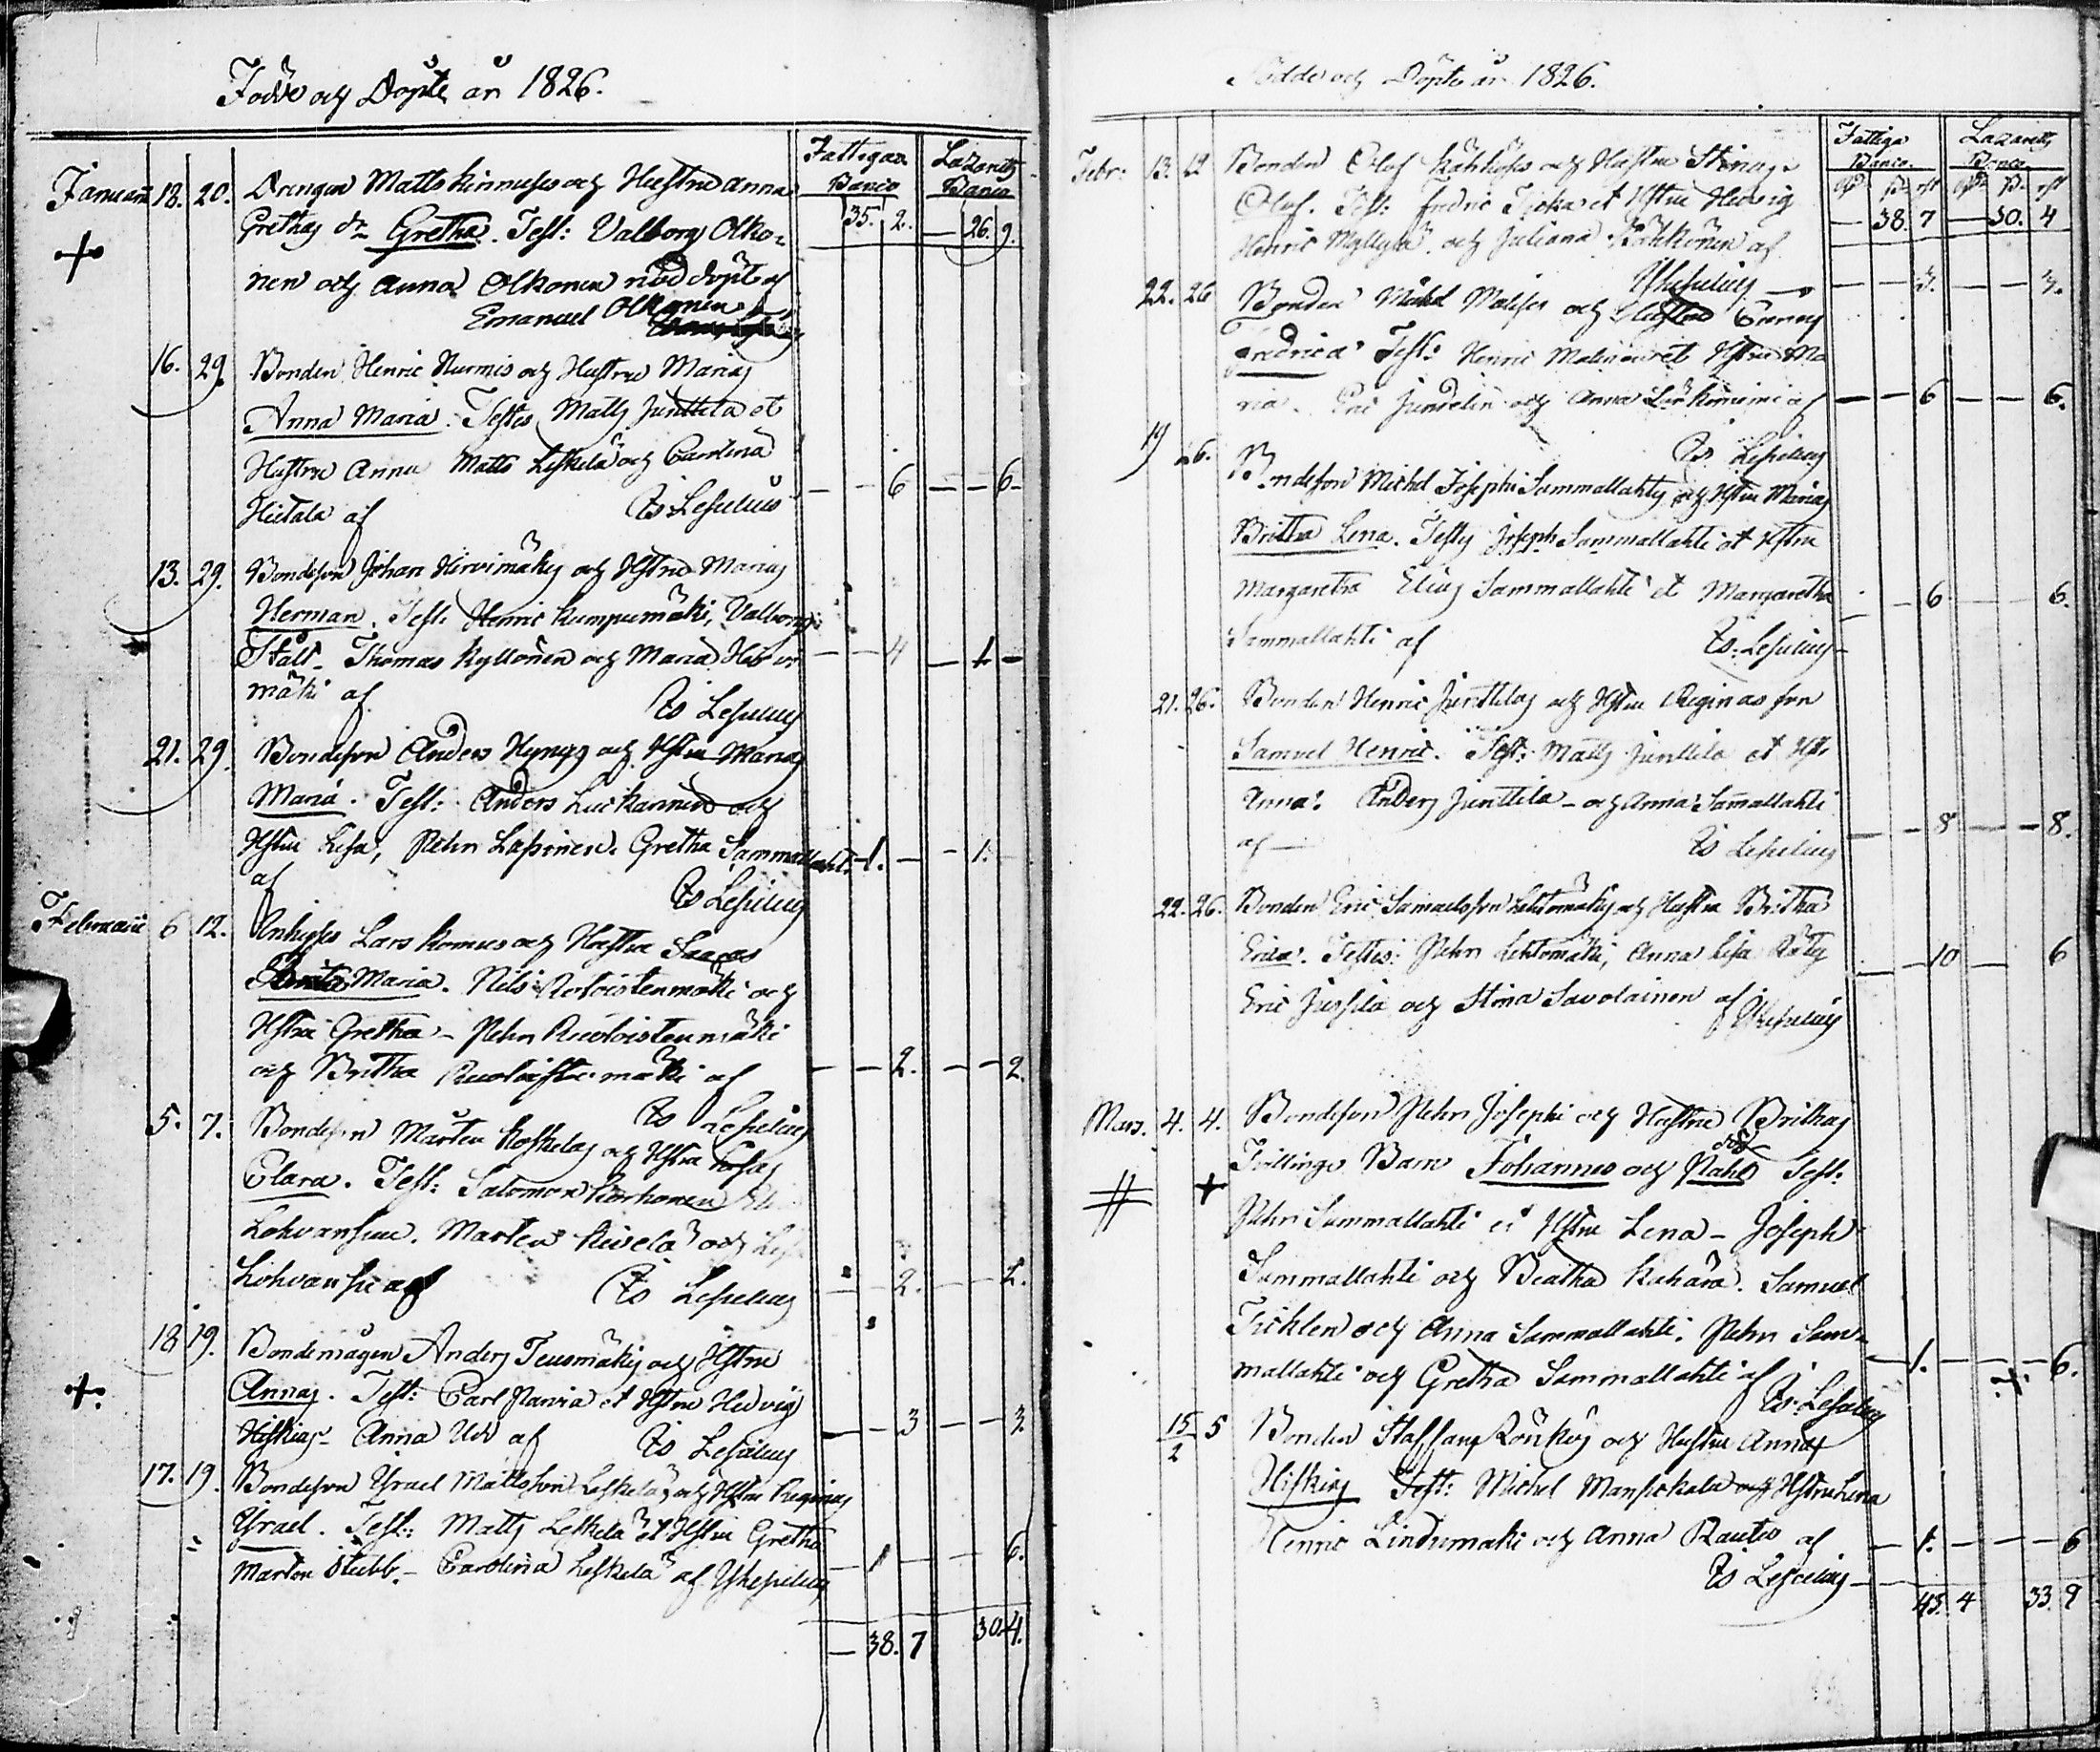 Födde och Döpte år 1826.
Fattigas Banco
Lazaretts Banco
Januarii 18. 20. Drengen Matts Kinnuses och Hustru Anna
Grethas dr Gretha. Test: Valborg Olko-
35. 2. — 26. 9.
nen och Anna Olkonen nöddöpt af
Emanuel Olkonen
16. 29. Bonden Henric Nurmis och Hustru Marias
Anna Maria. Testes Matts Junttila et
Hustru Anna Matts Leskelä och Carolina
Hietala af Es: Lesselius — — 6 — — 6
13. 29. Bondeson Johan Hirvimäkis och Hstru Marias
Herman. Test: Henric Kumpumäki, Valborg
Ståll. Thomas Kyllönen och Maria Hirvi — — 4 — 4 —
mäki af Es Lesselius
21. 29. Bondeson Anders Hynnys och Hstru Marias
Maria. Test: Anders Luckarinen och
Hstru Lisa, Pehr Lassinen. Gretha Sammallahti 1. — — 1.
af Es Lesselius
Februarii 6 12. Inhyses Lars Komus och Hustru Saaras
Maria. Nils Ruoloistenmäki och
Hstru Gretha — Pehr Ruoloistenmäki
och Britha Ruoloistenmäki af — — 2. — — 2.
Es Lesselius
5. 7. Bondeson Mårten Koskelas och Hstru Lisas
Clara. Test: Salomon Korhonen
Lohvansuu. Marten Kivelä och
Lohvansu af Es Lesselius — 2. — 2.
18 19. Bondemågen Anders Teusmäkis och Hstru
Annas. Test: Carl Parvia et Hstru Hedvig
Hiskias — Anna Ud af Es Lesselius — — 3 — — 3.
17. 19. Bondeson Ysrael Mattsson Leskeläs och Hstru Reginas
Ysrael. Test: Matts Leskelä et Hstru Gretha
Marten Stubb. — Carolina Leskelä af YLesselius — 1 — — 6.
— 38. 7 30. 4.
Födde och Döpte år 1826.
Fattiga Banco
Lazaretts Banco
Febr: 13. 12 Bonden Olof Kähkönes och Hustru Stinas
Olof. Test: Fredric Tjeka et Hstru Hedvig — 38. 7 — 30. 4
Henric Myllylä och Juliana Kähkönen af
YLesselius — — 3. — — 3.
22. 26 Bonden Mickel Malises och Hustru
Fredrica. Test: Henric Malinen et Hstru Ma
ria. Eric Jundelin och Anna af — — 6 — — 6.
Es Lesselius
19 26. Bondeson Michel Josephs Sammallahtis och Hstru Marias
Britha Lena. Testes Joseph Sammallahti et Hstru
Margaretha Elias Sammallahti et Margaretha — 6 6.
Sammallahti af Es: Lesselius
21. 26. Bonden Henric Junttilas och Hstru Reginas son
Samuel Henric. Test: Matts Junttila et Hstr
Anna. Anders Junttila — och Anna Sammallahti
af — Es Lesselius — 8 — — 8.
22. 26. Bonden Eric Samuelsson Lehtomäkis och Hustru Britha
Erica. Testes: Pehr Lehtomäki, Anna Lisa Räty — 10 — 6
Eric Jussila och Stina Savolainen af YLesselius
Mars. 4. 4. Bondeson Pehr Josephs och Hustru Brithas
död
Tvillinge Barn Johannes och Pehr Test:
Pehr Sammallahti et Hstru Lena — Joseph
Sammallahti och Beatha Kahära. Samuel
Ticklen och Anna Sammallahti. Pehr Sam-
mallahti och Gretha Sammallahti af — 1. — — 6.
Es: Lesselius
15/2 5 Bonden Staffans Rönkös och Hustru Annas
Hiskias Test: Michel Mansikala och Hstru Lena
Henric Lindumäki och Anna Rautio af — 1. — — 6
Es Lesselius
43. 4 33. 9